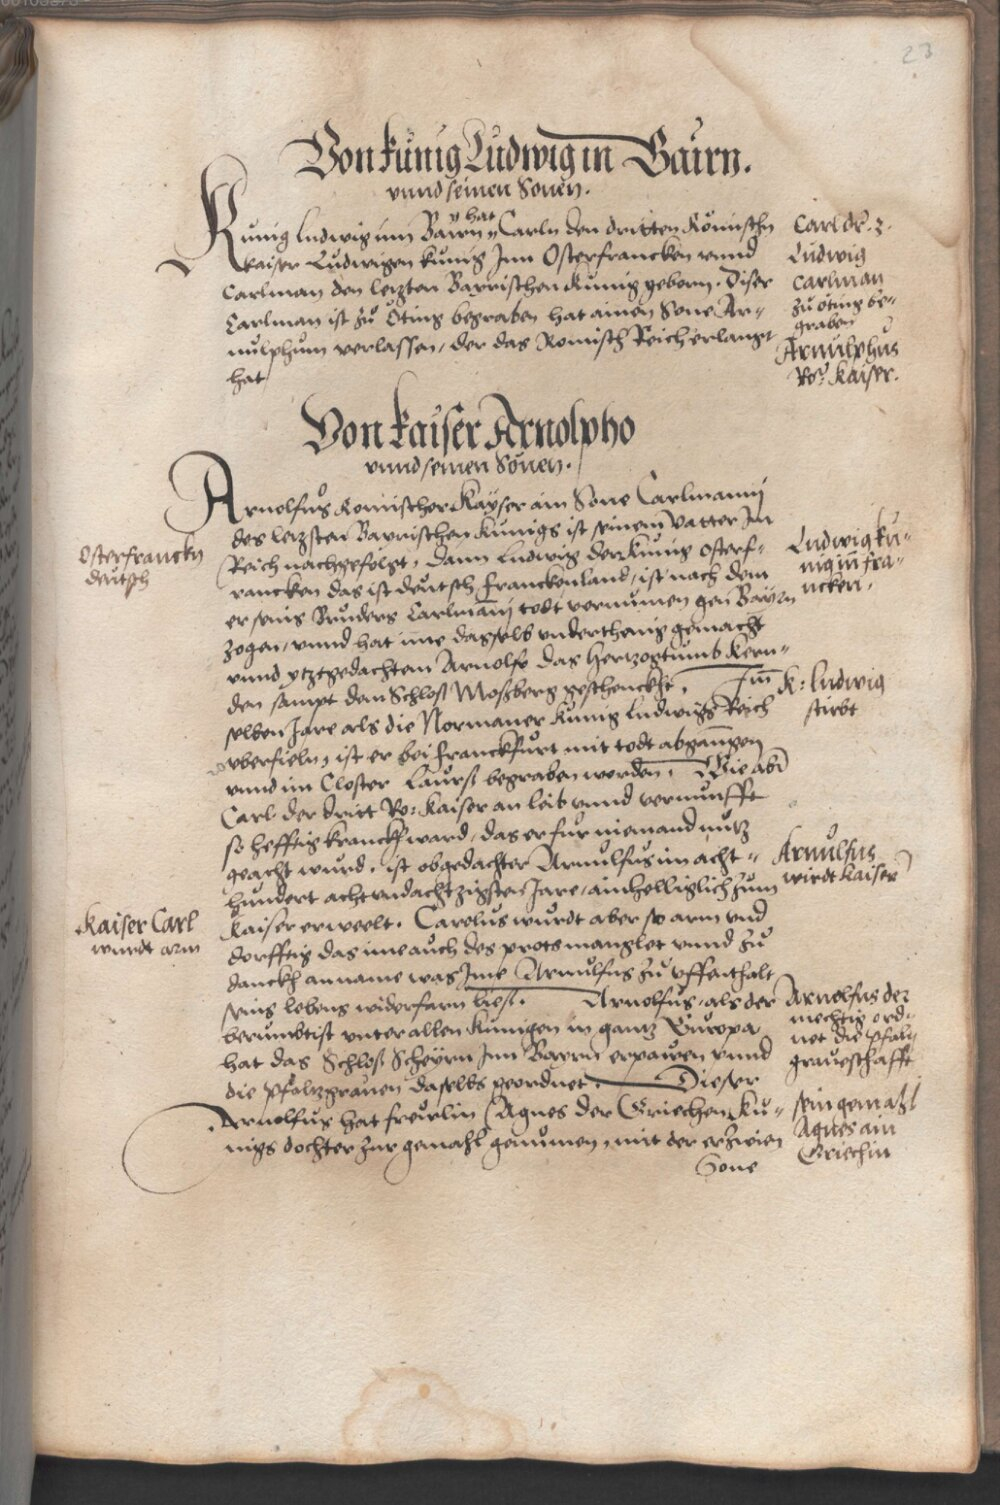 23
Von künig Ludwig in Bairn.
vnnd seinen Sönen.
Kunig Ludwig inn Bairn hat Carln den dritten Römischn
kaiser Ludwigen kunig Inn Osterfrancken vnnd
Carlman den letzten Bayrischen kunig geborn. Diser
Carlman ist zů Öting begraben hat ainen Sone Ar-
nulphum verlassen, der das Romisch Reich erlangt
hat
Carl der .3.
Ludwig
Carlman
zů öting be-
graben
Arnulphus
Rö: kaiser.
Von kaiser Arnolpho
vnnd seinen Sönen.
Arnolfus Romischer Kayser ain Sone Carlmanni
des letzsten Bayrischen kunigs ist seinem Vatter Im
Reich nachgefolgt. Dann Ludwig der kunig Osterf-
rancken das ist deutsch Franckenland, ist nach dem
er seins Bruders Carlmanni todt vernumen gen Bayrn
zogen, vnnd hat ime dasselb vnderthenig gemacht
vnnd ytztgedachtem Arnolfo das Hertzogtumb Kern-
den sampt dem Schloß Moßberg geschenckht. Im
selben Jare als die Normaner kunig Ludwigs Reich
vberfieln, ist er bei Franckfurt mit todt abgangen
vnnd im Closter Laurß begraben worden. Wie aber
Carl der dritt Rö: Kaiser an leib vnnd vernunfft
so hefftig kranckh ward, das er fur niemand nutz
geacht wurd, ist obgedachter Arnulfus im acht-
hundert acht vndachtzigsten Jare, ainhelliglich zum
Kaiser erweelt. Carolus wurdt aber so arm vnd
dorfftig das ime auch des prots manglet vnnd zů
danckh anname was Ime Arnulfus zů vffenthalt
seins lebens widerfarn ließ. Arnolfus, als der
berumbtist vnter allen kunigen in gantz Europa
hat das Schloß Scheyrn Inn Bayrn erpawen vnnd
die Pfaltzgrauen daselbs geordnet. Dieser
Arnolfus hat freurlin Agnes der Griechen Ku-
nigs dochter zur gemahl genumen, mit der er zwien
Sone
Osterfranckn
deutsch
Ludwig ku-
nig inn fra-
ncken.
K: Ludwig
stirbt
Arnulfus
wirdt kaiser
Kaiser Carl
wurdt arm
Arnolfus der
mechtig ord-
net die Pfaltz
graueschafft
sein gemahl
Agnes ain
Griechin